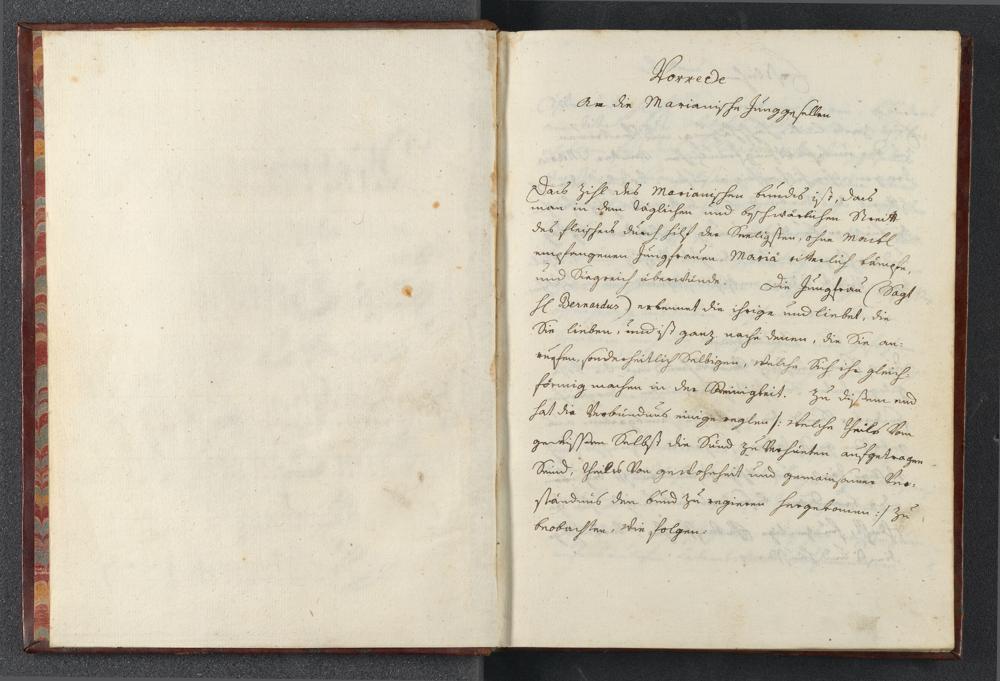 Vorrede
An die Marianische Junggesellen
Das Zihl des Marianischen bunds ist, das
man in dem täglichen und beschwärlichen Streitt
des fleisches durch hilf der Seeligsten, ohne Mackl
empfangenen Jungfrauen Mariä ritterlich kämpfe,
und Siegreich überwinde. Die Jungfrau (Sagt
hl Bernardus) erkennet die ihrige und liebet, die
Sie lieben, und ist ganz nache denen, die Sie an-
rueffen, sonderheitlich Selbigen, welche Sich ihr gleich-
förmig machen in der Reinigkeit. Zu disem end
hat die Verbündnus einige reglen /: welche theils Vom
gewissen Selbst die Sünd zu Verhüeten aufgetragen
Seind, theils Von gewohnheit und gemainsamer Ver-
ständnus den bund zu regieren hergekomen :/ zu
beobachten, wie folgen.